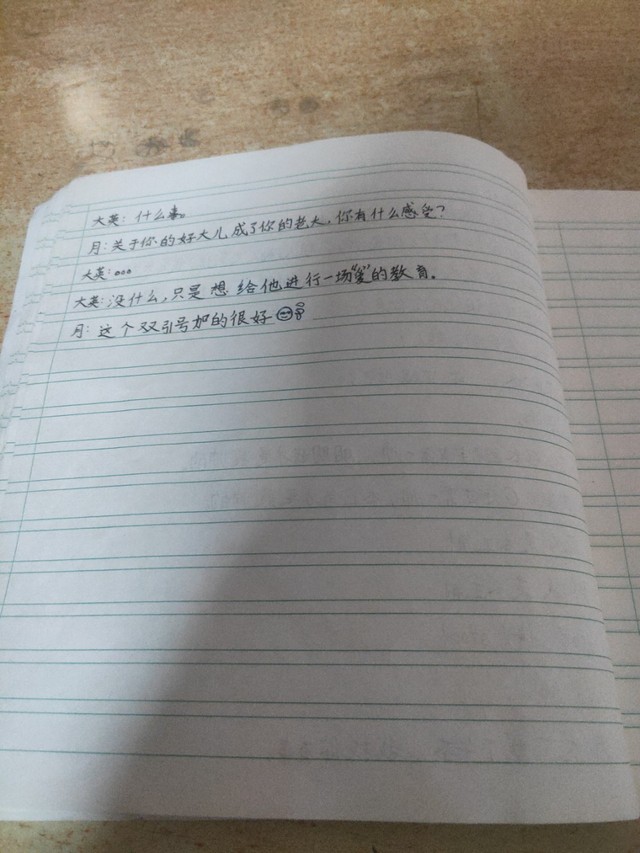 大英：什么事。
月：关于你的好大儿成了你的老大，你有什么感受？
大英：。。。
大英：没什么，只是想给他进行一场“爱”的教育。
月：这个双引号加的很好